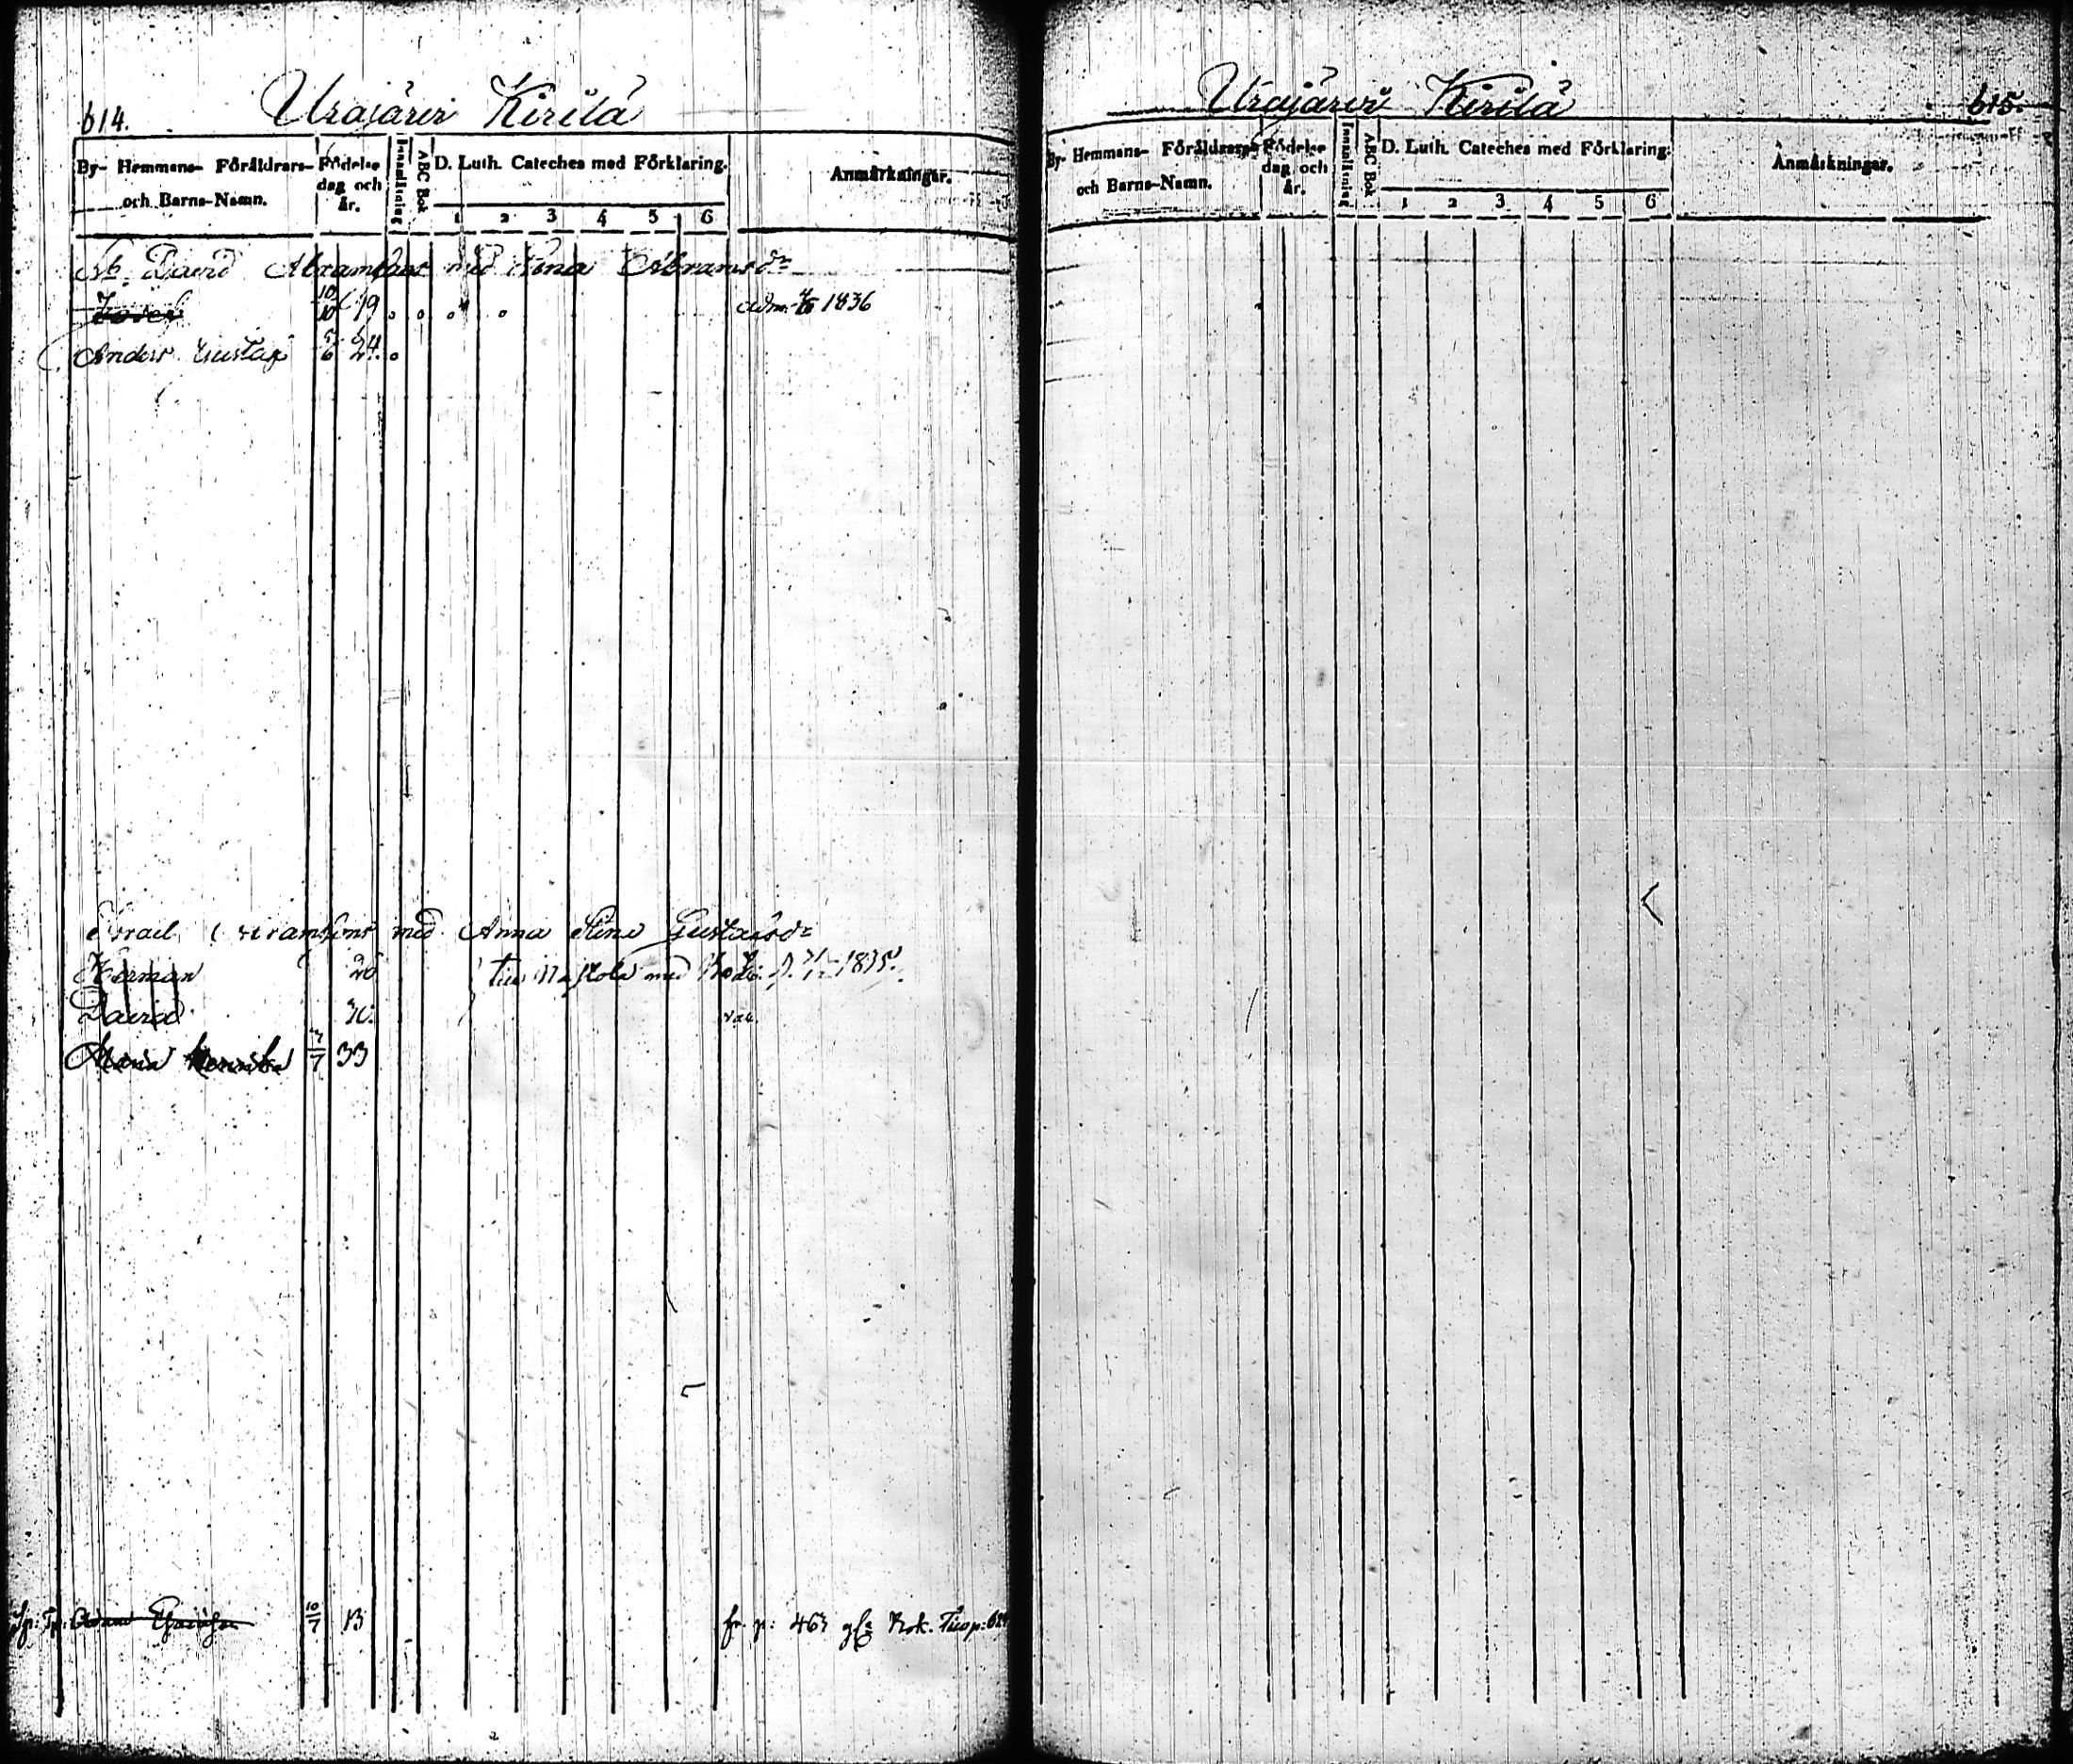 614. Urajärvi Kirilä
By- Hemmans- Föräldrars- och Barns-Namn. Födelse dag och år. Innanläsning ABC Bok D. Luth. Cateches med Förklaring. Anmärkningar.
1 2 3 4 5 6
David Abramsons med Stina Abramsdr
Josef 10/10 19 adm. 1836
Anders Gustaf 5/6 24.
Israel Abramsons med Anna Stina Gustafsdr
Herman 26 till Nastola med 1835.
David 30. vac.
Maria Henrika 33
10/7 13 fr. p: 463 Bok.
Urajärvi Kirilä 615.
By- Hemmans- Föräldrars- och Barns-Namn. Födelse dag och år. Innanläsning ABC Bok D. Luth. Cateches med Förklaring. Anmärkningar.
1 2 3 4 5 6